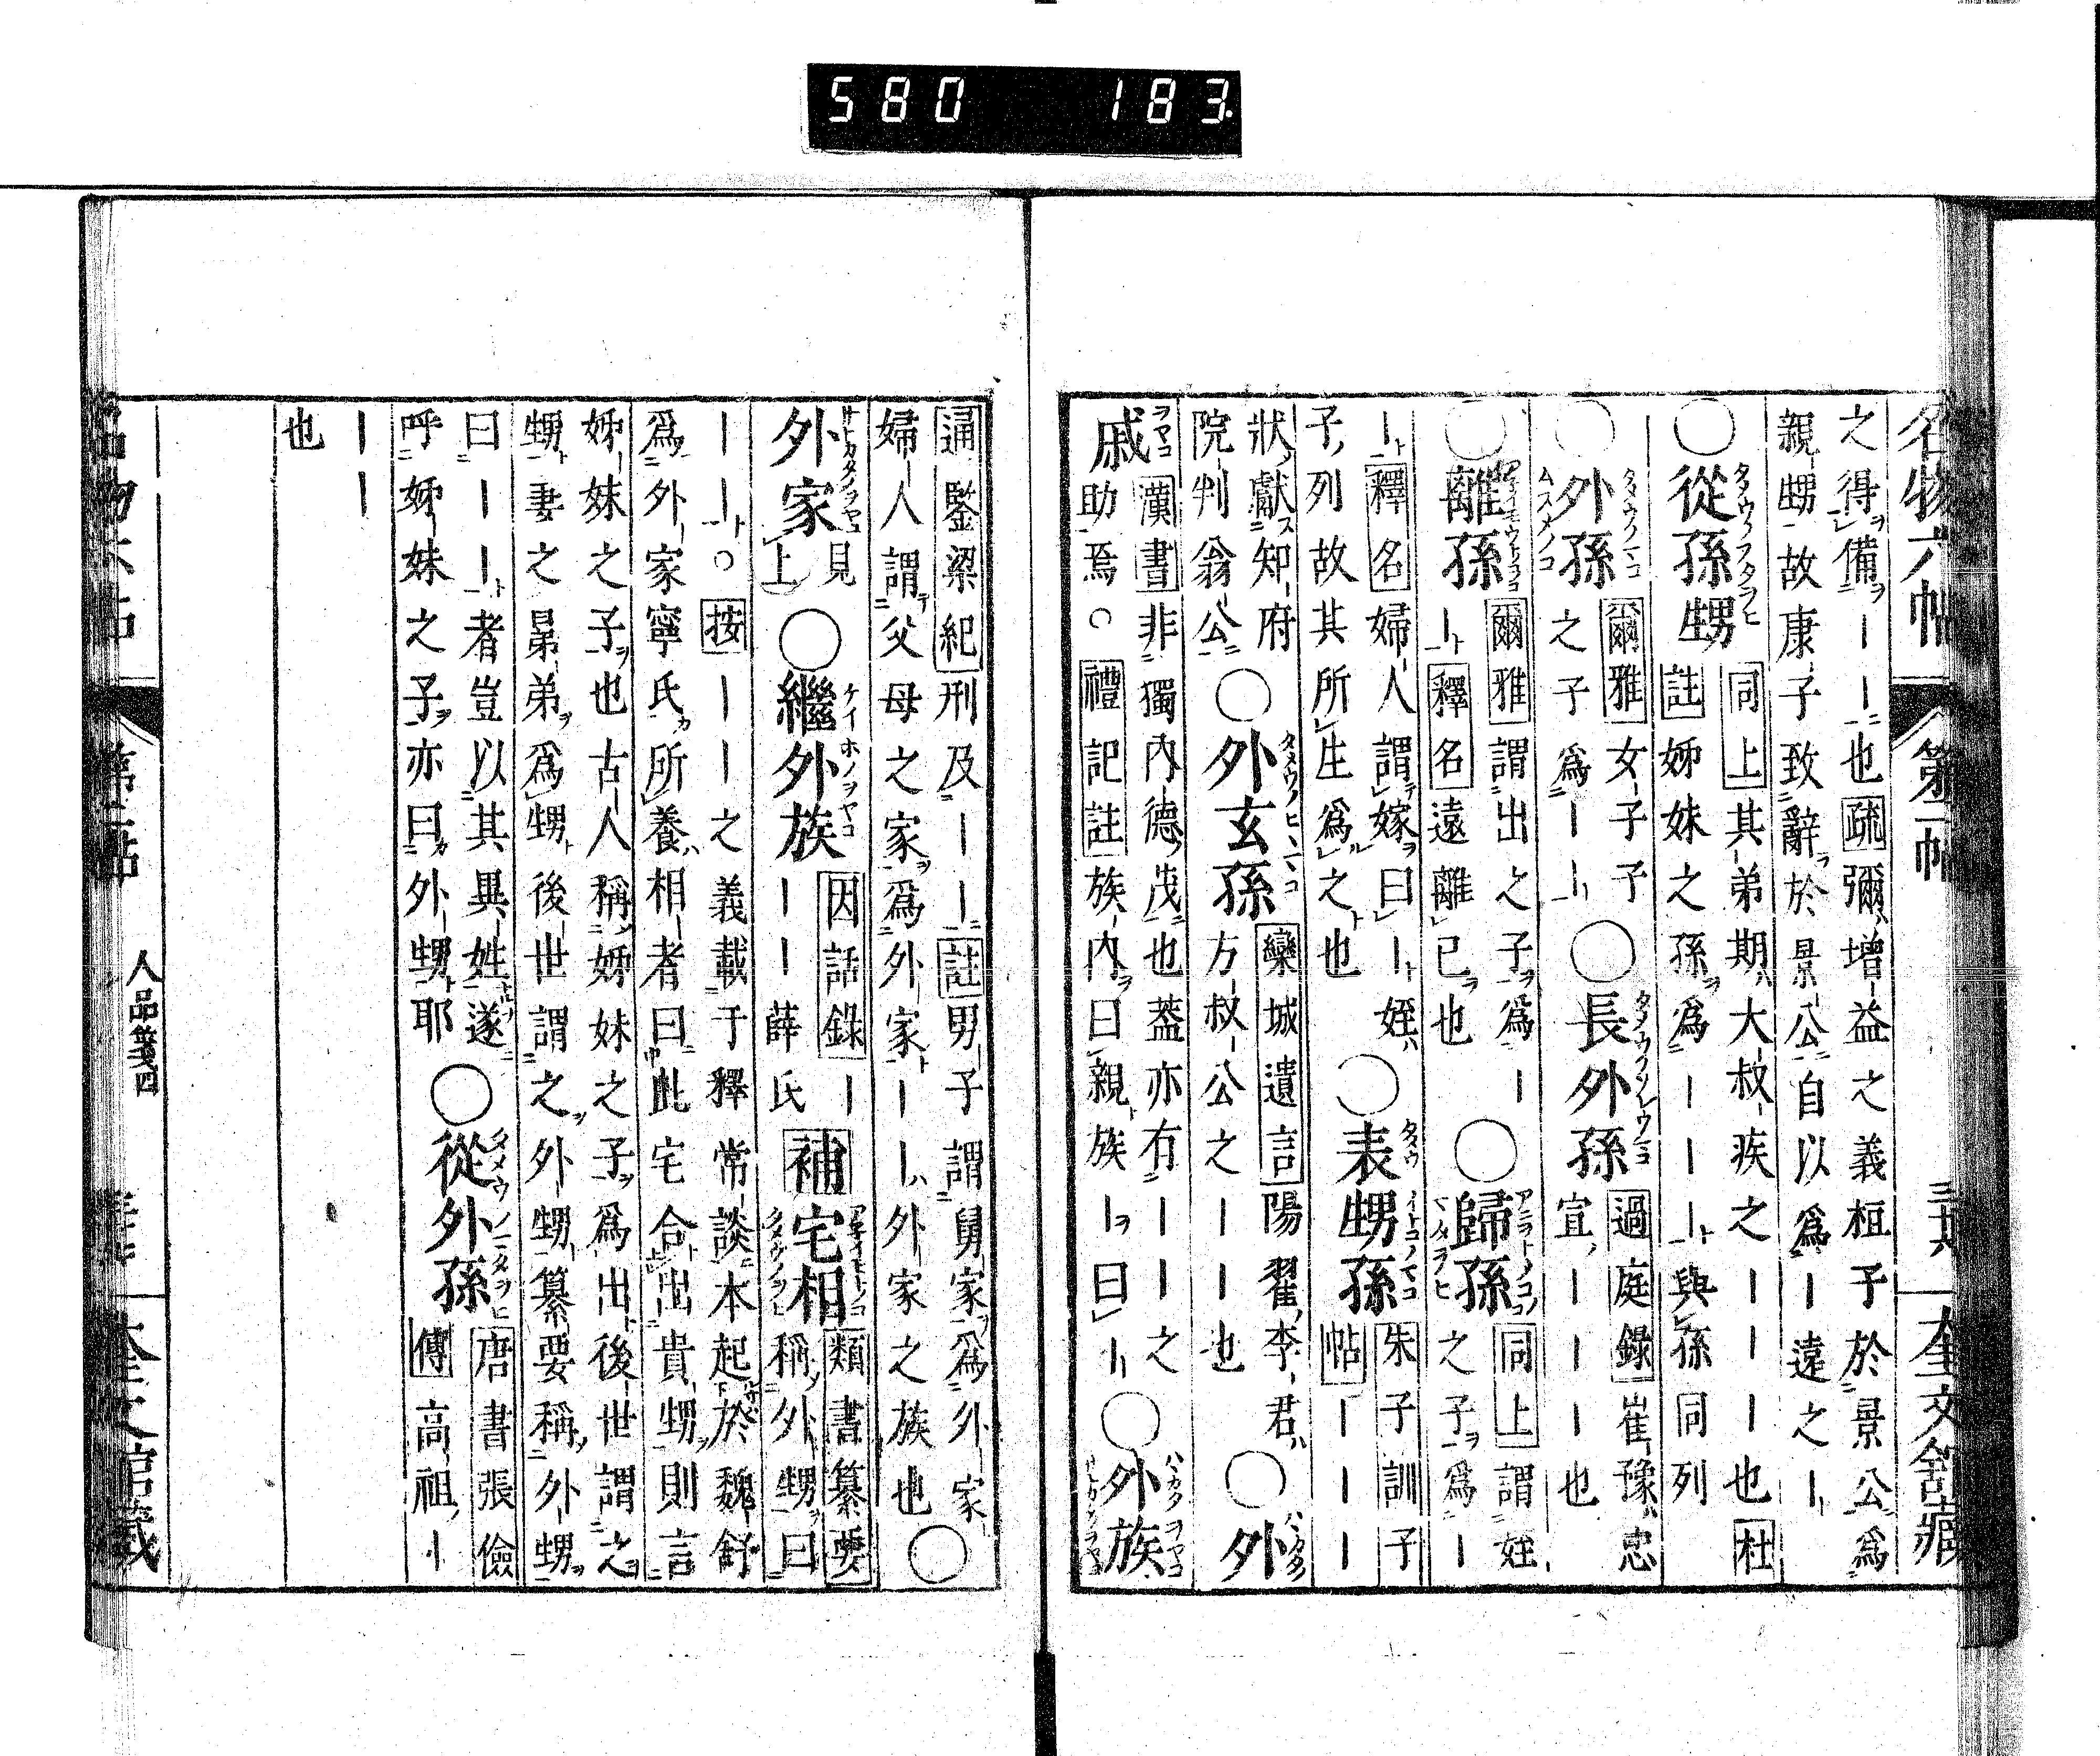 580 183
名物六帖 第二帖 三十六 奎文館藏
之得備｜｜也疏彌増益之義桓子於景公爲
親甥故康子致辭於景公自以爲｜遠之｜
○從孫甥 同上其弟期大叔疾之｜｜｜也杜
註姊妹之孫爲｜｜｜與孫同列
○外孫 爾雅女子子之子爲｜｜ ○長外孫 過庭錄崔豫忠宣｜｜｜也
○離孫 爾雅謂出之子爲｜｜釋名遠離已也 ○歸孫 同上謂姪之子爲｜
｜釋名婦人謂嫁曰｜姪
子列故其所生爲之也 ○表甥孫 朱子訓子帖｜｜｜
狀獻知府
院判翁公 ○外玄孫 欒城遺言陽翟李君方叔公之｜｜｜也 ○外
戚 漢書非獨內德茂也蓋亦有｜｜之
助焉○禮記註族內曰親族｜曰｜ ○外族
通鑒梁紀刑及｜｜註男子謂舅家爲外家
婦人謂父母之家爲外家｜｜外家之族也 ○
外家 見上 ○繼外族 因話錄｜｜｜薛氏 補 宅相 類書纂要稱外甥曰
｜｜○按｜｜之義載于釋常談本起於魏舒
爲外家寧氏所養相者曰此宅合出貴甥則言
姊妹之子也古人稱姊妹之子爲出後世謂之
甥妻之晜弟爲甥後世謂之外甥纂要稱外甥
曰｜｜者豈以其異姓遂
呼姊妹之子亦曰外甥耶 ○從外孫 唐書張儉傳高祖｜
｜｜
也
人品箋四